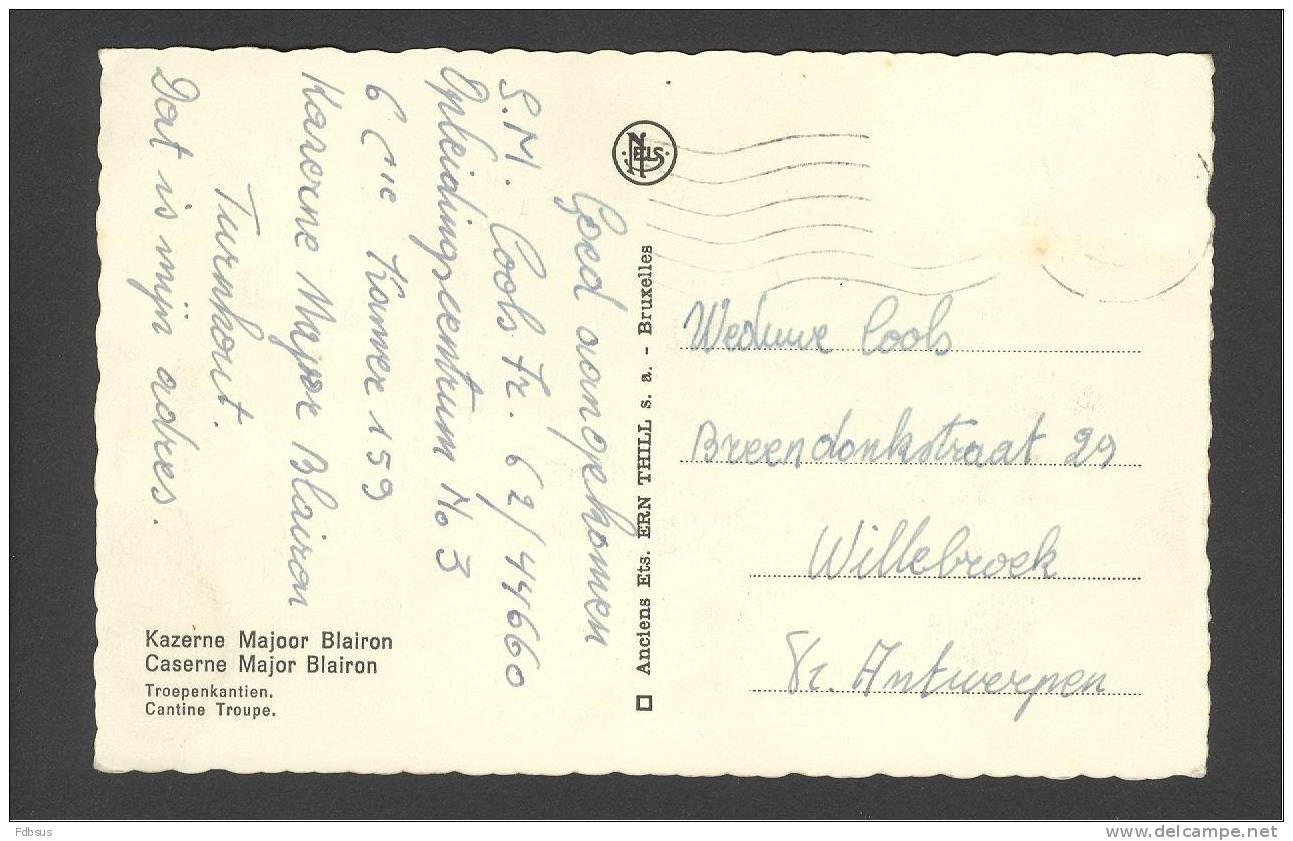 Goed aangekomen
S.M. Cools Fr. 62/44660
Opleidingscentrum No 3
6 Cie Kamer 159
Kazerne Majoor Blairon
Turnhout.
Dat is mijn adres.
Kazerne Majoor Blairon
Caserne Major Blairon
Troepenkantien.
Cantine Troupe.
NELS
Anciens Ets. ERN THILL s. a. - Bruxelles
Weduwe Cools
Breendonkstraat 29
Willebroek
Pr. Antwerpen
Fdbsus
www.delcampe.net